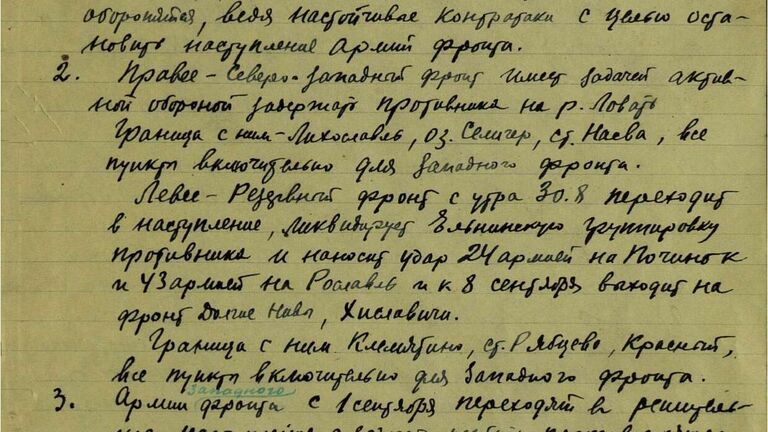 обороняется, ведя настойчивые контратаки с целью оста-
новить наступление Армий фронта.
2. Правее – Северо-западный фронт имеет задачей актив-
ной обороной задержать противника на р. Ловать
Граница с ним – Лихославль, оз. Селигер, ст. Наева, все
пункты включительно для Западного фронта.
Левее – Резервный фронт с утра 30.8 переходит
в наступление, ликвидирует Ельнинскую группировку
противника и наносит удар 24 армией на Починок
и 43 армией на Рославль и к 8 сентября выходит на
фронт Долгие Нивы, Хиславичи.
Граница с ним Клемятино, ст. Рябцево, Красный,
все пункты включительно для Западного фронта.
Западного
3. Армии фронта с 1 сентября переходят в решитель-